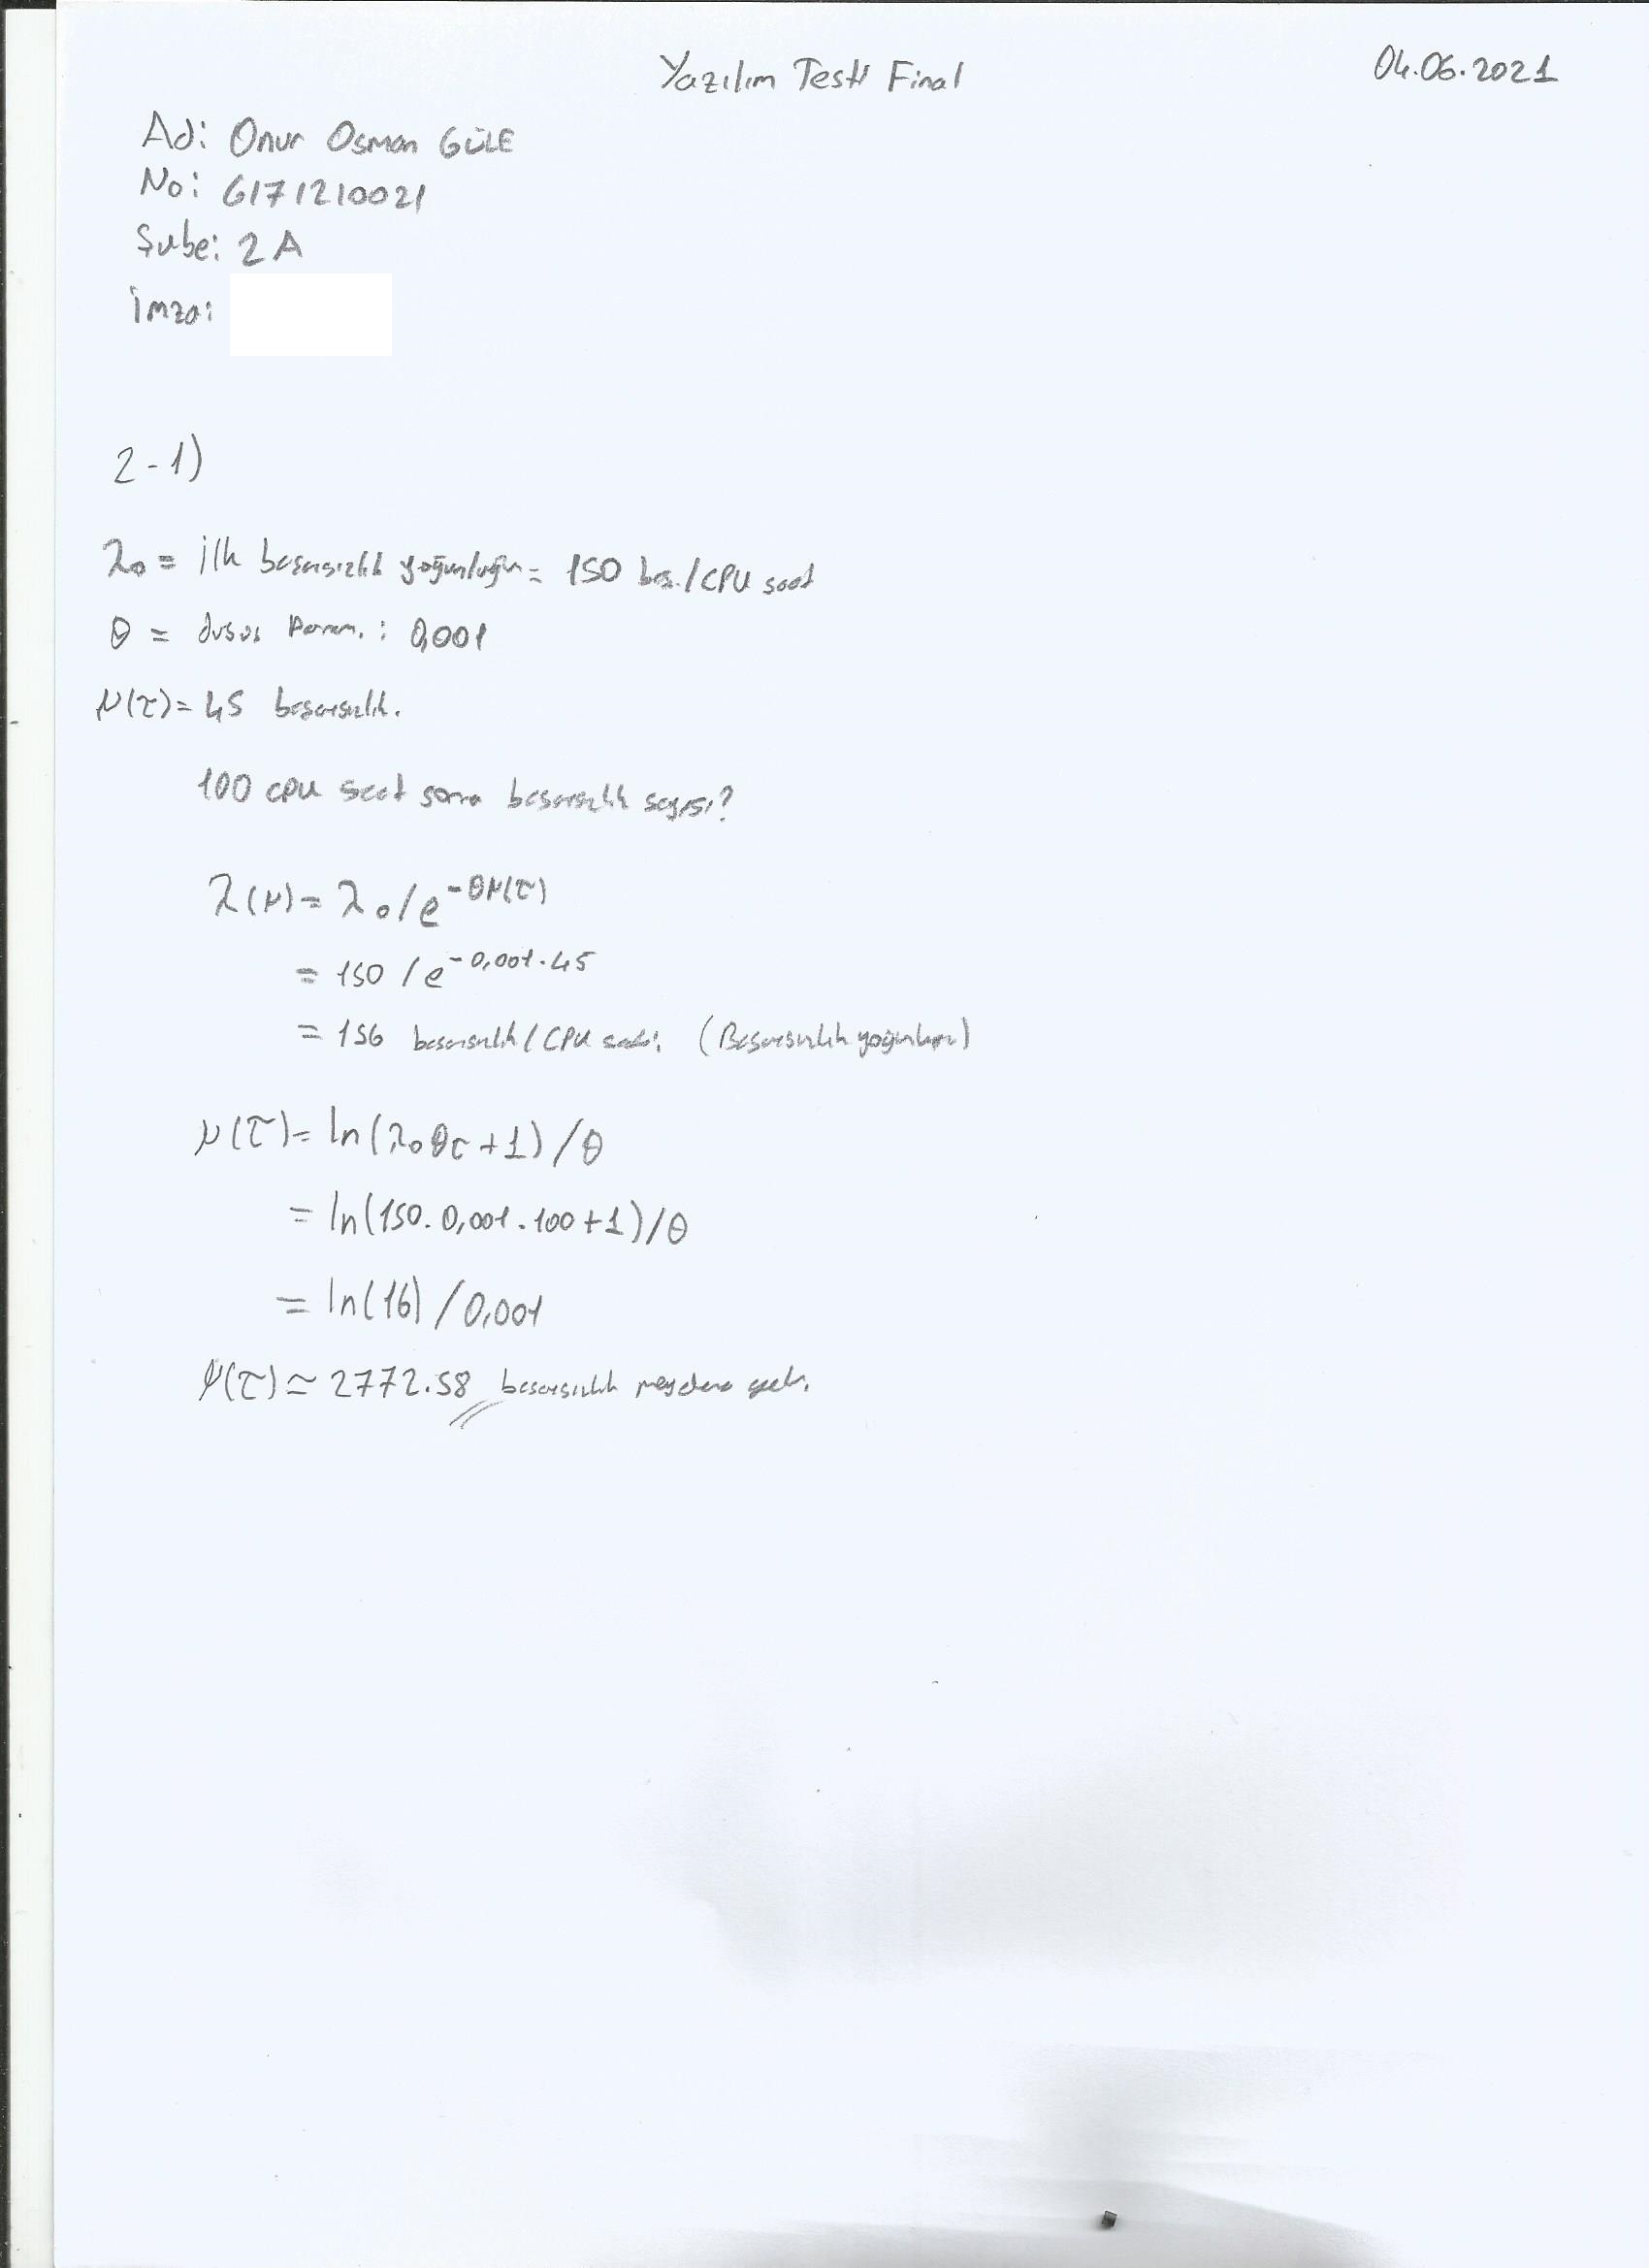 Yazılım Testi Final
04.06.2021
Ad: Onur Osman GÜLE
No: 6171210021
Şube: 2A
İmza:
2-1)
λ₀ = ilk başarısızlık yoğunluğu = 150 baş./CPU saat
θ = düşüş Param. : 0,001
μ(τ) = 45 başarısızlık.
100 cpu saat sonra başarısızlık sayısı?
λ(μ) = λ₀/e^-θμ(τ)
= 150 /e^-0,001.45
= 156 başarısızlık/CPU saati (Başarısızlık yoğunluğu)
μ(τ) = ln(λ₀θτ+1)/θ
= ln(150.0,001.100+1)/θ
= ln(16)/0,001
μ(τ) ≃ 2772.58 başarısızlık meydana gelir.